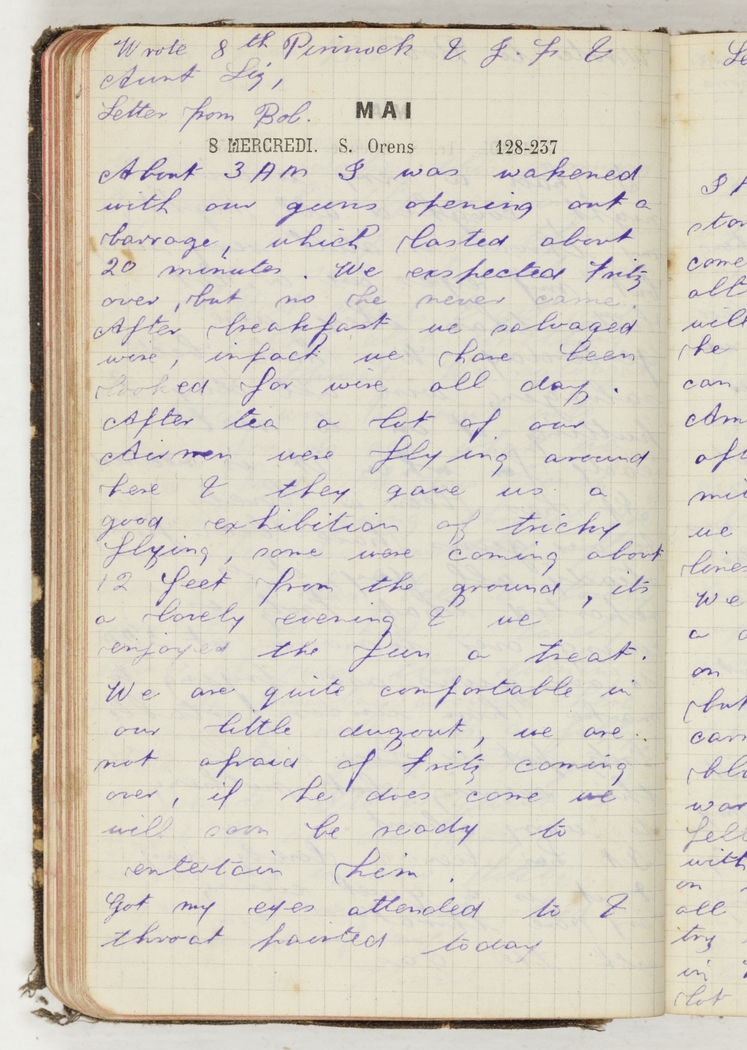 Wrote 8th Pinnock & J. F. &
Aunt Liz,
Letter from Bob.
MAI
8 MERCREDI. S. Orens 128-237
About 3 AM I was wakened
with our guns opening out a
barrage, which lasted about
20 minutes. We exspected Fritz
over, but no he never came.
After breakfast we salvaged
wire, infact we have been
looked for wire all day.
After tea a lot of our
Airmen were flying around
here & they gave us a
good exhibition of tricky
flying, some were coming about
12 feet from the ground, its
a lovely evening & we
enjoyed the fun a treat.
We are quite comfortable in
our little dugout, we are
not afraid of Fritz coming
over, if he does come we
will soon be ready to
entertain him.
Got my eyes attended to &
throat painted today